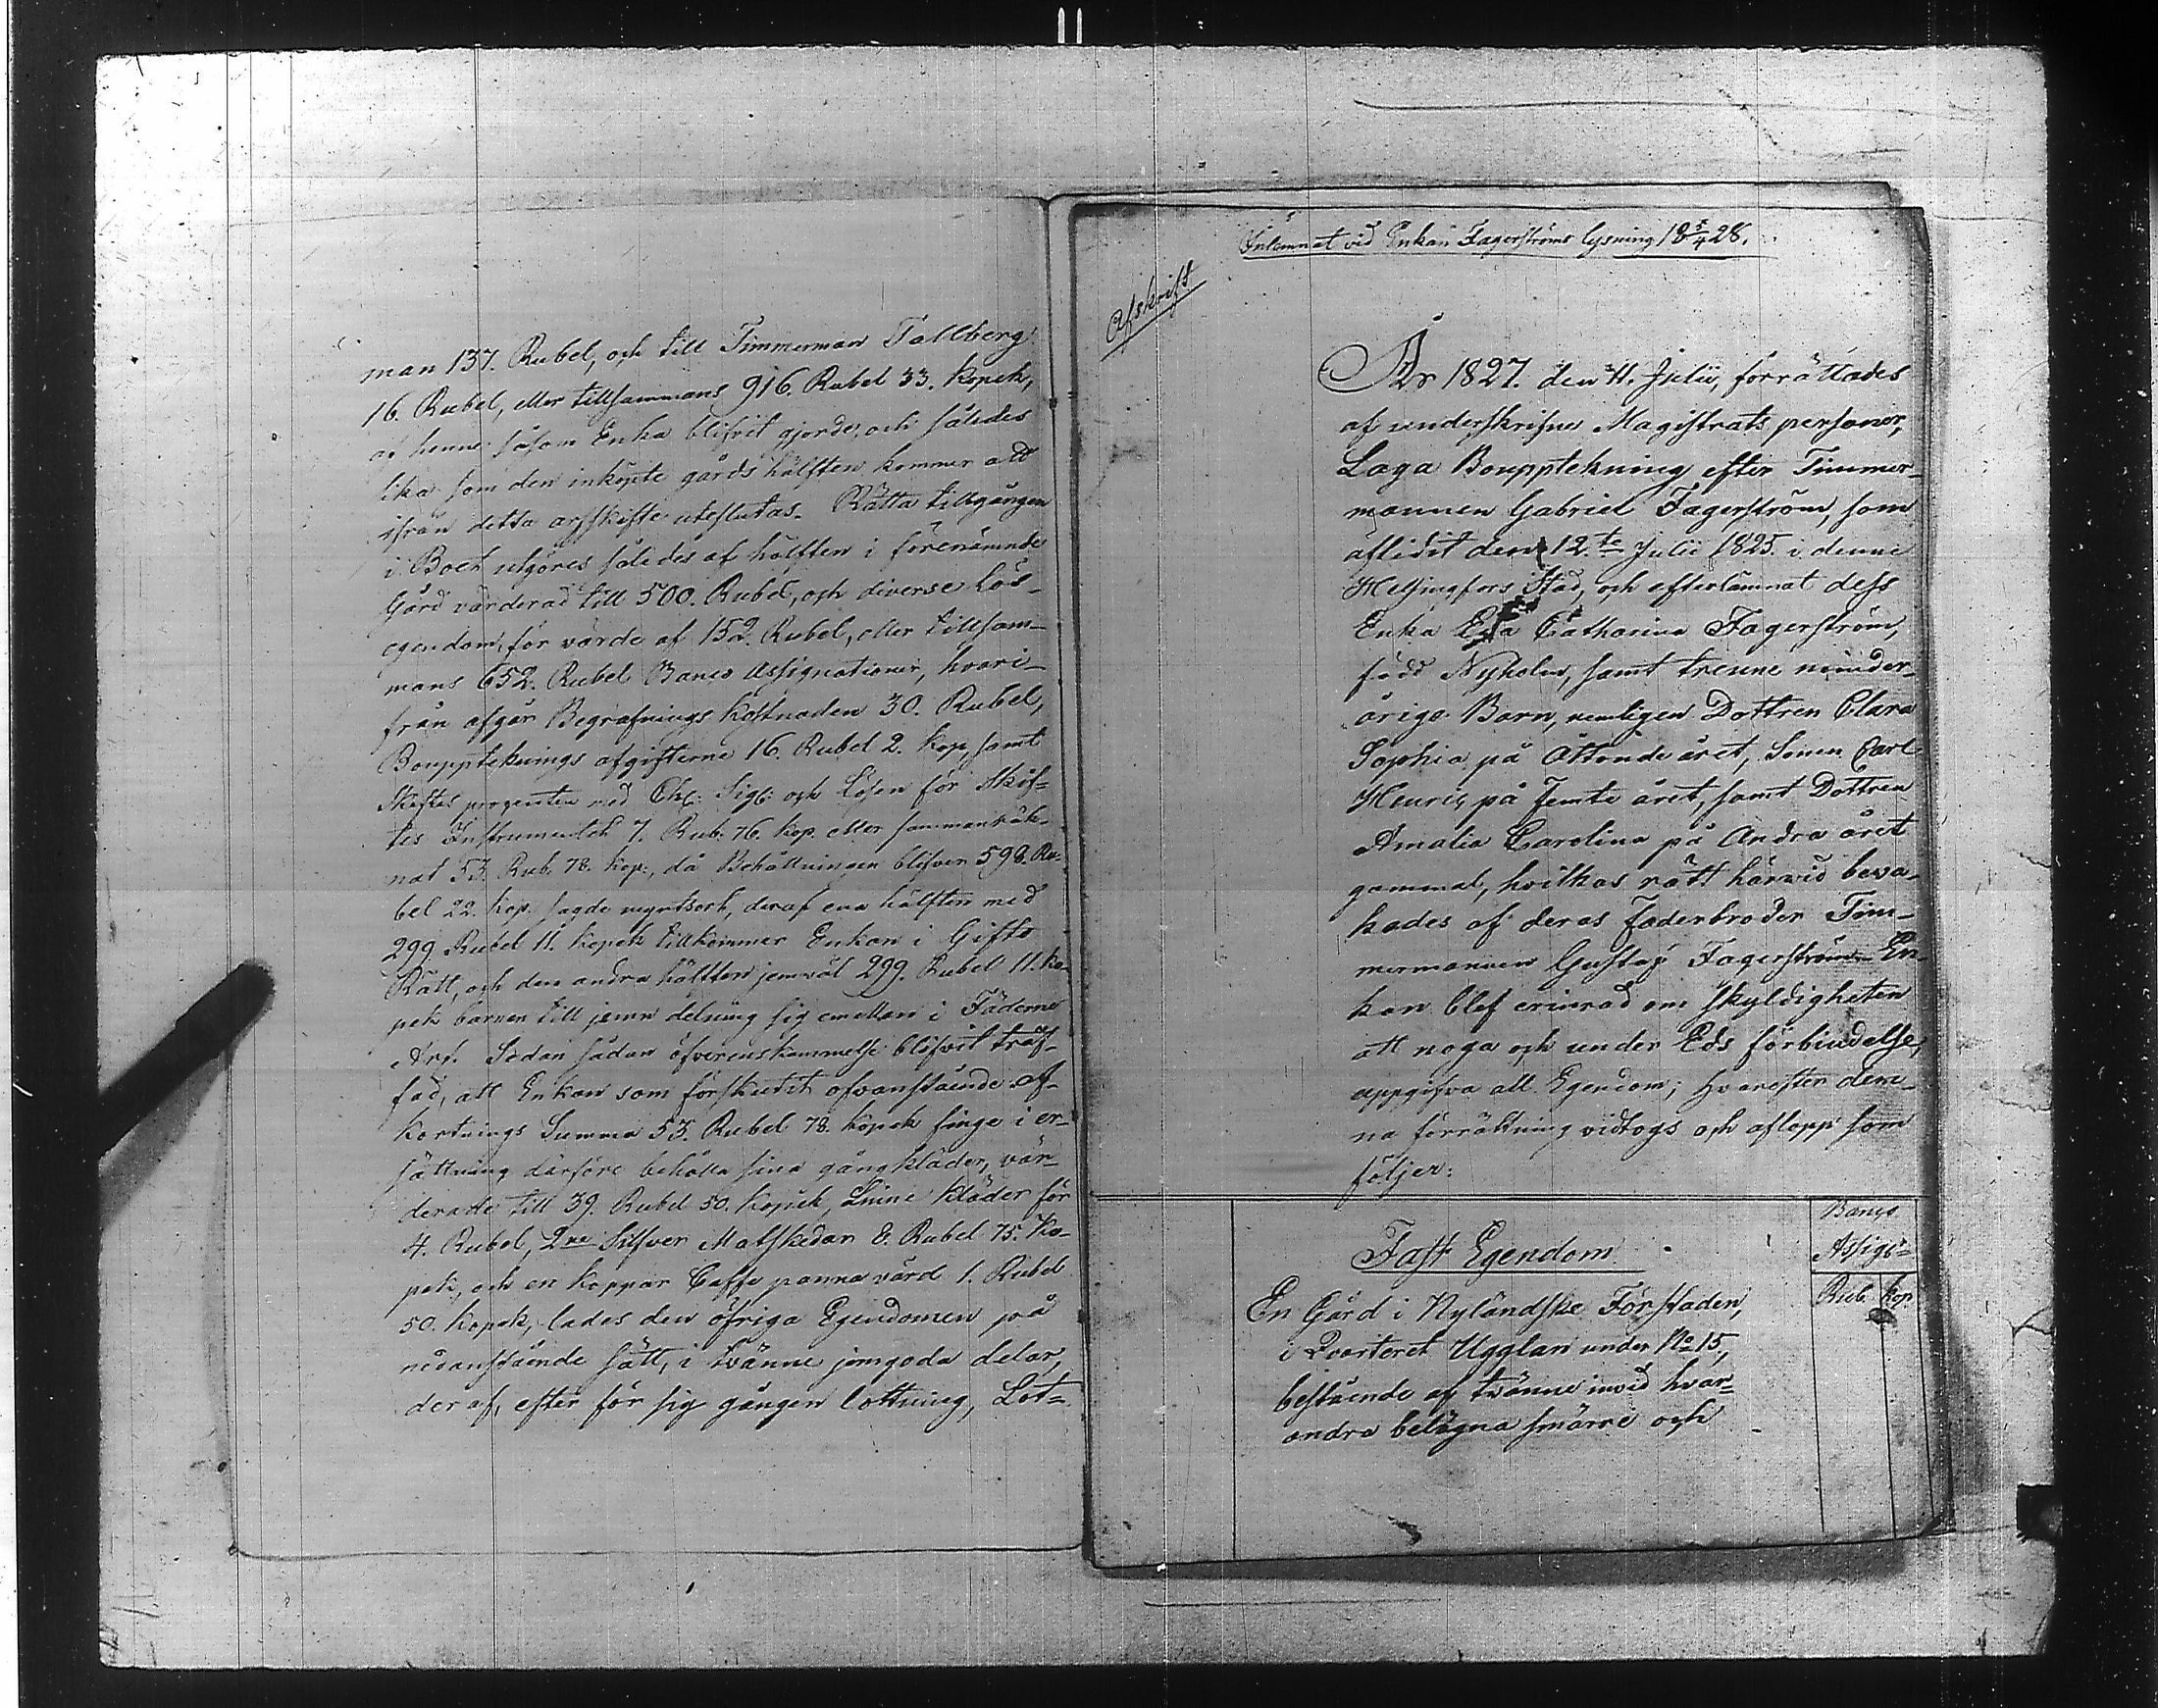 man 137. Rubel, och till Timmerman Tallberg
16. Rubel, eller tillsammans 916. Rubel 33. kopek,
af henne såsom Enka blifvit gjorde, och således
lika som den inköpte gårds hälften kommer att
ifrån detta arfskifte uteslutas. Rätta tillgången
i Boet utgöres således af hälften i förenämnde
Gård värderad till 500. Rubel, och diverse Lös-
egendom, för värde af 152. Rubel, eller tillsam-
mans 652. Rubel Banco Assignationer, hvari-
från afgår Begrafnings kostnaden 30. Rubel,
Bouppteknings afgifterne 16. Rubel 2. kop, samt
Skiftes procenten med Chtæ: Sigl: och Lösen för Skif-
tes Instrumentet 7. Rub. 76. kop. eller sammanräk-
nat 53. Rub. 78. kop:, då Behållningen blifver 598. Ru-
bel 22. kop. sagde myntsort, deraf ena hälften med
299 Rubel 11. kopek tillkommer Enkan i Gifto
Rätt, och den andra hälften jemväl 299. Rubel 11. ko-
pek barnen till jemn delning sig emellan i Fäderne
Arf. Sedan sådan öfverenskommelse blifvit träf-
fad, att Enkan som förskutit ofvanstående Af-
kortnings Summa 53. Rubel 78. kopek finge i er-
sättning därföre behålla sina gångkläder, vär-
derade till 39. Rubel 50. kopek, Linne kläder för
4. Rubel, 2ne Silfver Matskedar 8. Rubel 75. Ko-
pek, och en koppar Caffe panna värd 1. Rubel
50. kopek, lades den öfriga Egendomen på
nedanstående sätt, i tvänne jemgoda delar,
deraf, efter för sig gången lottning, Lot-
Inlemnat vid Enkan Fagerströms lysning 18 5/4 28.
Afskrift
År 1827. den 11. Julii, förrättades
af underskrifne Magistrats personer,
Laga Boupptekning efter Timmer-
mannen Gabriel Fagerström, som
aflidit den 12.te Julii 1825. i denne
Helsingfors Stad, och efterlämnat dess
Enka Eva Catharina Fagerström,
född Nyholm, samt trenne minder-
årige Barn, nemligen Dottren Clara
Sophia på Åttonde året, Sonen Carl
Henric på femte året, samt Dottren
Amalia Carolina på Andra året
gammal, hvilkas rätt härwid beva-
kades af deras Faderbroder Tim-
mermannen Gustaf Fagerström. En-
kan blef erinrad om skyldigheten
att noga och under Eds förbindelse,
uppgifva all Egendom; hvarefter den-
na förrättning vidtogs och aflopp som
följer:
Banco
Fast Egendom
Assigr
Rub. kop.
En Gård i Nylandske Förstaden,
i Qvarteret Ugglan under No 15,
bestående af tvänne invid hvar-
andra belägna smärre och